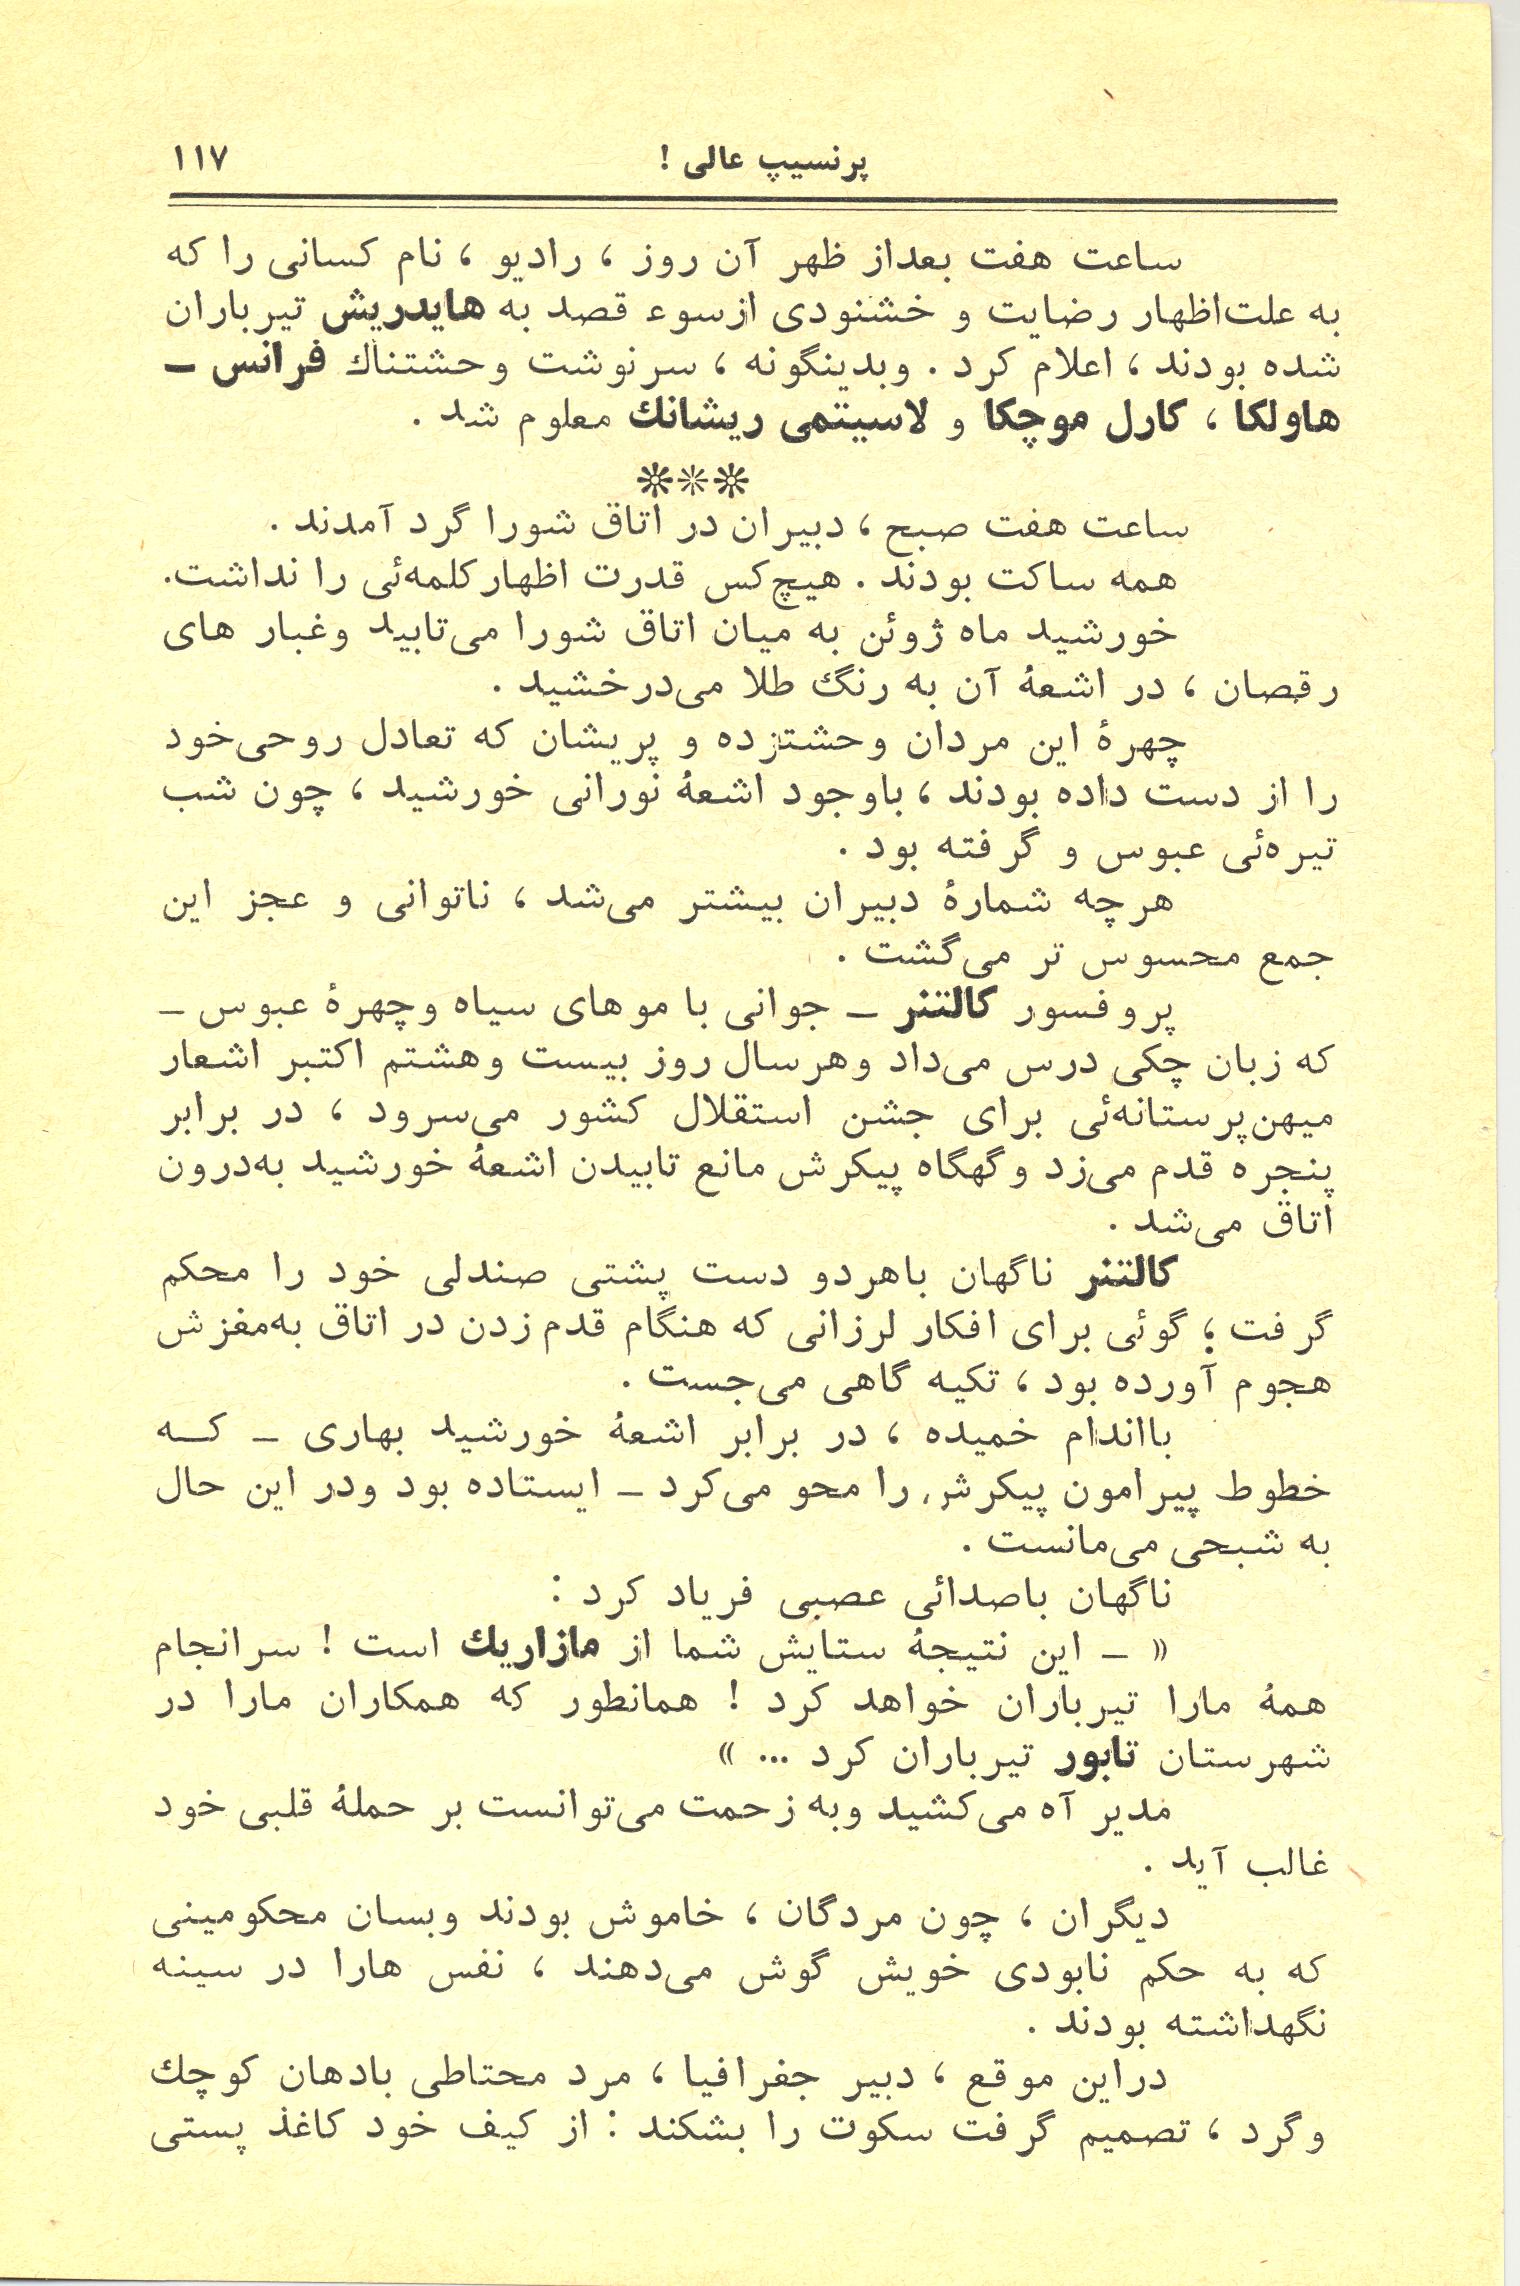 پرنسیپ عالی ! ۱۱۷
ساعت هفت بعداز ظهر آن روز ، رادیو ، نام کسانی را که
به علت‌اظهار رضایت و خشنودی ازسوء قصد به هایدریش تیرباران
شده بودند ، اعلام کرد . وبدینگونه ، سرنوشت وحشتناك فرانس ـ
هاولکا ، کارل موچکا و لاسیتمی ریشانك معلوم شد .
❊❊❊
ساعت هفت صبح ، دبیران در اتاق شورا گرد آمدند .
همه ساکت بودند . هیچ‌کس قدرت اظهارکلمه‌ئی را نداشت.
خورشید ماه ژوئن به میان اتاق شورا می‌تابید وغبار های
رقصان ، در اشعهٔ آن به رنگ طلا می‌درخشید .
چهرهٔ این مردان وحشتزده و پریشان که تعادل روحی‌خود
را از دست داده بودند ، باوجود اشعهٔ نورانی خورشید ، چون شب
تیره‌ئی عبوس و گرفته بود .
هرچه شمارهٔ دبیران بیشتر می‌شد ، ناتوانی و عجز این
جمع محسوس تر می‌گشت .
پروفسور کالتنر ـ جوانی با موهای سیاه وچهرهٔ عبوس ـ
که زبان چکی درس می‌داد وهرسال روز بیست وهشتم اکتبر اشعار
میهن‌پرستانه‌ئی برای جشن استقلال کشور می‌سرود ، در برابر
پنجره قدم می‌زد وگهگاه پیکرش مانع تابیدن اشعهٔ خورشید به‌درون
اتاق می‌شد .
کالتنر ناگهان باهردو دست پشتی صندلی خود را محکم
گرفت ؛ گوئی برای افکار لرزانی که هنگام قدم زدن در اتاق به‌مغزش
هجوم آورده بود ، تکیه گاهی می‌جست .
بااندام خمیده ، در برابر اشعهٔ خورشید بهاری ـ کـه
خطوط پیرامون پیکرش را محو می‌کرد ـ ایستاده بود ودر این حال
به شبحی می‌مانست .
ناگهان باصدائی عصبی فریاد کرد :
« ـ این نتیجهٔ ستایش شما از مازاریك است ! سرانجام
همهٔ مارا تیرباران خواهد کرد ! همانطور که همکاران مارا در
شهرستان تابور تیرباران کرد ... »
مدیر آه می‌کشید وبه زحمت می‌توانست بر حملهٔ قلبی خود
غالب آید .
دیگران ، چون مردگان ، خاموش بودند وبسان محکومینی
که به حکم نابودی خویش گوش می‌دهند ، نفس هارا در سینه
نگهداشته بودند .
دراین موقع ، دبیر جغرافیا ، مرد محتاطی بادهان کوچك
وگرد ، تصمیم گرفت سکوت را بشکند : از کیف خود کاغذ پستی